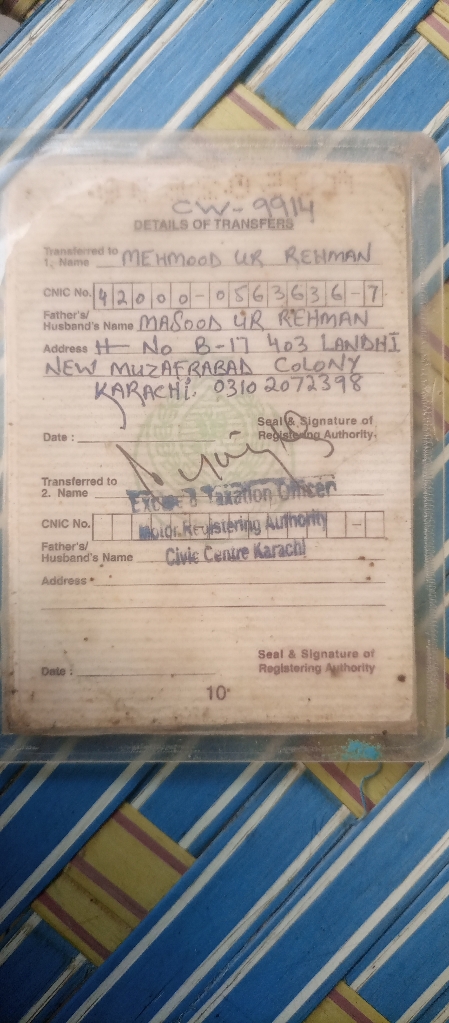 CW-9914
DETAILS OF TRANSFERS
Transferred to
1. Name MEHMOOD UR REHMAN
CNIC No. 42000-0563636-7
Father's/
Husband's Name MASOOD UR REHMAN
Address H No B-17 403 LANDHI
NEW MUZAFRABAD COLONY
KARACHI. 0310 2072398
Seal & Signature of
Date : Registering Authority.
Transferred to
2. Name
Excise & Taxation Officer
CNIC No. -
Motor Registering Authority
Father's/
Husband's Name
Civic Centre Karachi
Address
Seal & Signature of
Date : Registering Authority
10